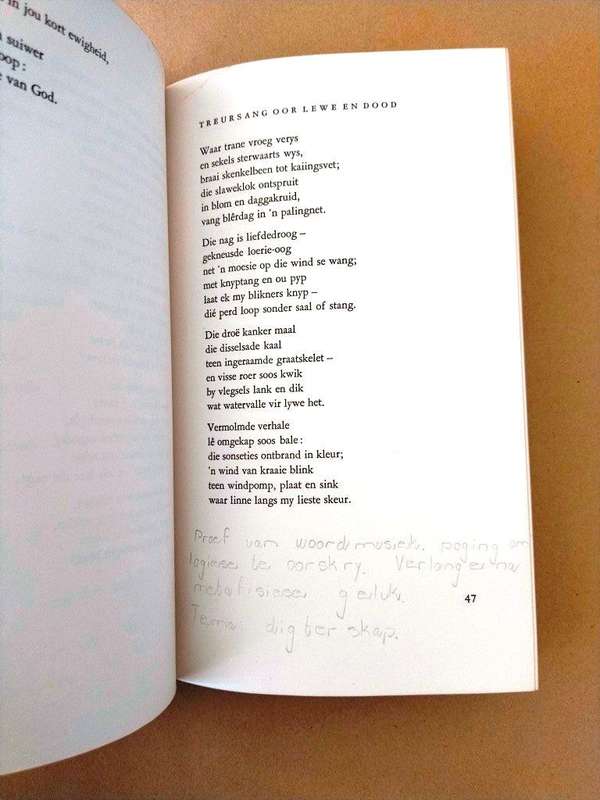 in jou kort ewigheid,
suiwer
van God.
TREURSANG OOR LEWE EN DOOD
Waar trane vroeg verys
en sekels sterwaarts wys,
braai skenkelbeen tot kaiingsvet;
die slaweklok ontspruit
in blom en daggakruid,
vang blêrdag in 'n palingnet.
Die nag is liefdedroog –
gekneusde loerie-oog
net 'n moesie op die wind se wang;
met knyptang en ou pyp
laat ek my blikners knyp –
dié perd loop sonder saal of stang.
Die droë kanker maal
die disselsade kaal
teen ingeraamde graatskelet –
en visse roer soos kwik
by vlegsels lank en dik
wat watervalle vir lywe het.
Vermolmde verhale
lê omgekap soos bale:
die sonseties ontbrand in kleur;
'n wind van kraaie blink
teen windpomp, plaat en sink
waar linne langs my lieste skeur.
Proef van woordmusiek. poging om
logiese te oorskry. Verlange na
metafisiese geluk.
47
Tema: digterskap.